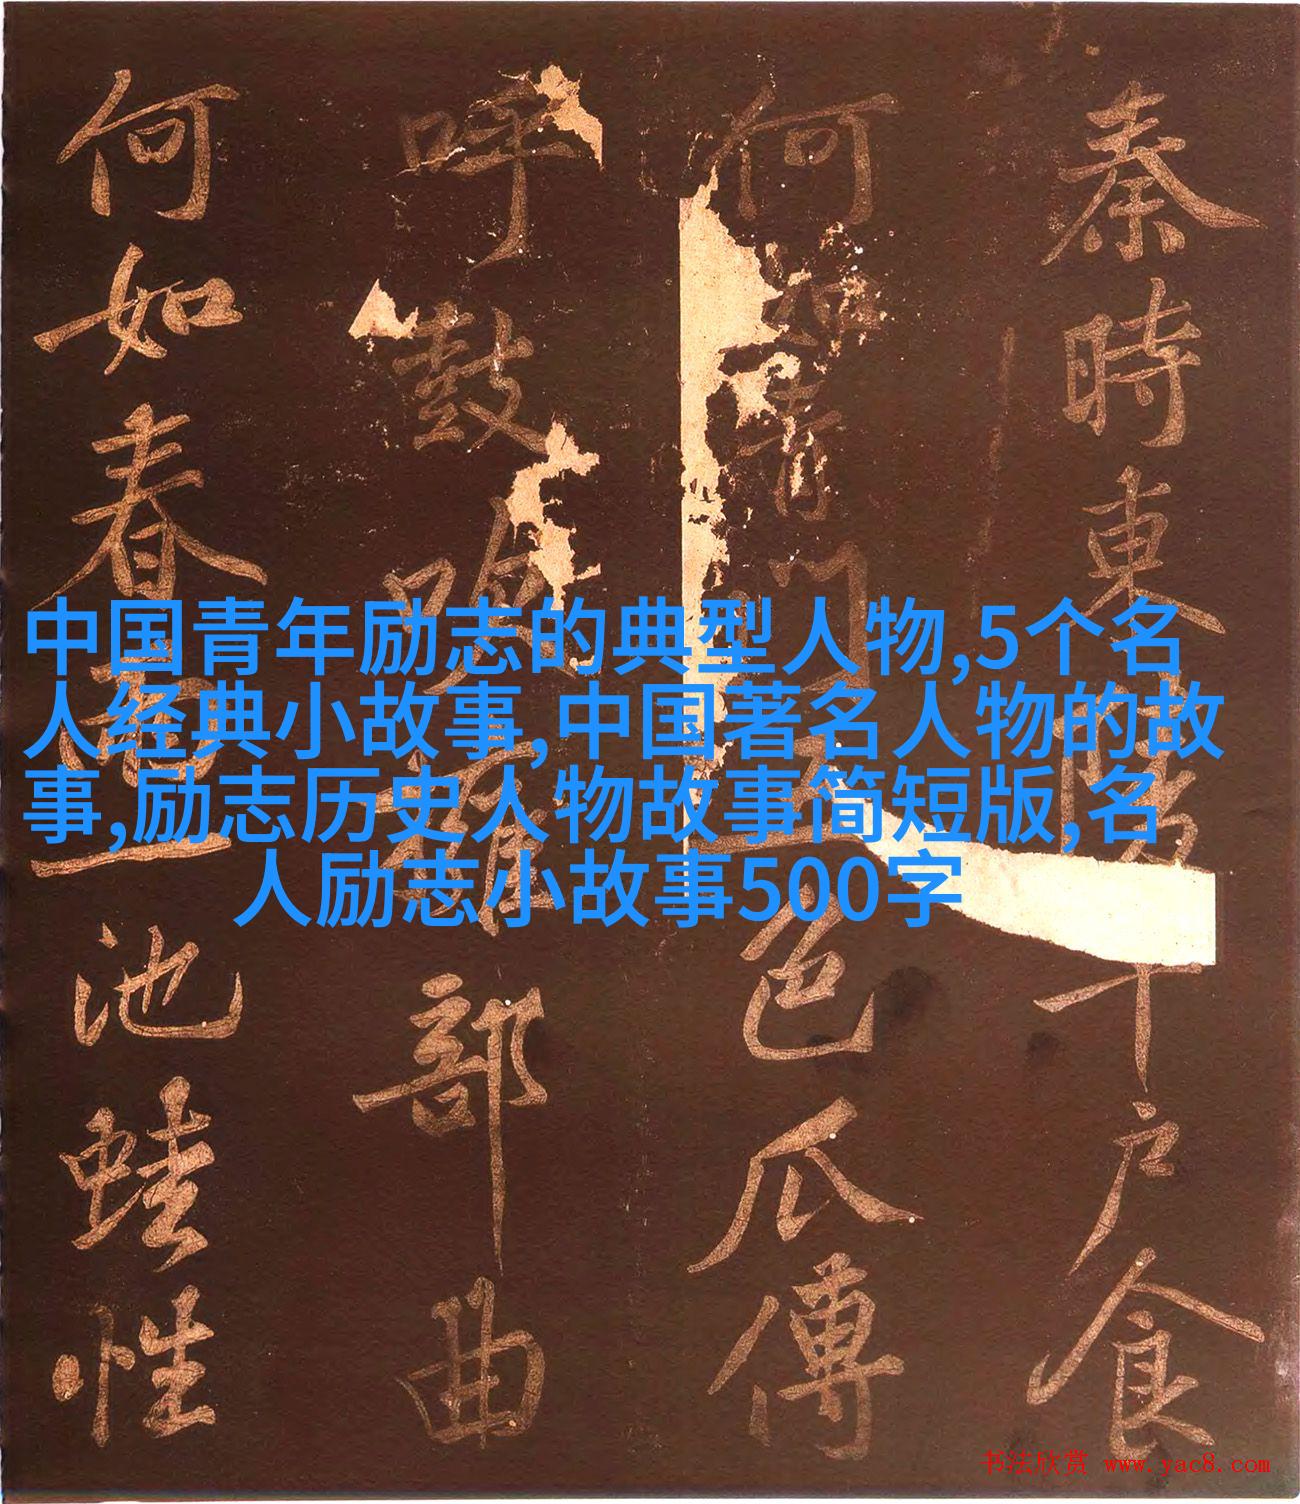 中国青年励志的典型人物,5个名
人经典小故事,中国著名人物的故
事,励志历史人物故事简短版,名
人励志小故事500字
秦時東陵千戶食
何如青門五色瓜傳
呼鼓吹
部曲
何如春
池蛙性
书法欣赏 www.yac8.com